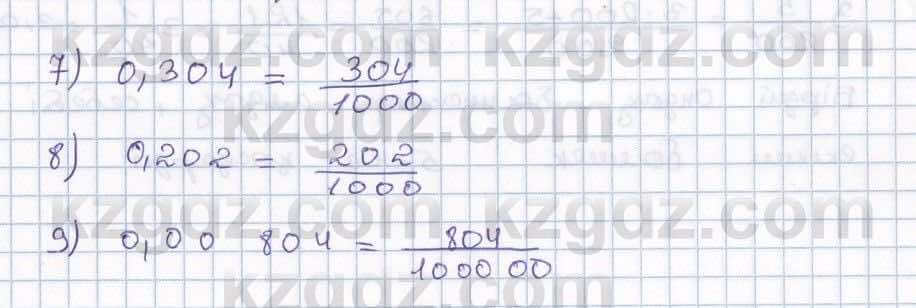 7) 0,304 = 304/1000
8) 0,202 = 202/1000
9) 0,00 804 = 804/100000
kzgdz.com kzgdz.com
kzgdz.com
kzgdz.com kzgdz.com
kzgdz.com